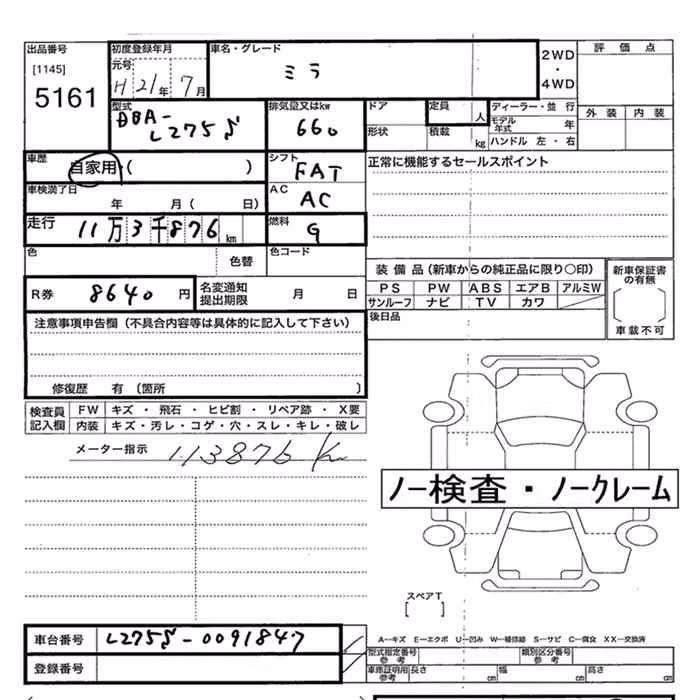 出品番号
[1145]
5161
初度登録年月
元号
H 21年 7月
車名・グレード
ミラ
2WD
・
4WD
評価点
外装 内装
型式
DBA-
L275S
排気量又はkw
660
ドア
形状
定員 人
積載 kg
ディーラー・並 行
モデル年式 年
ハンドル 左・右
車歴
自家用・( )
シフト
FAT
正常に機能するセールスポイント
車検満了日
年 月( 日)
AC
AC
走行 11万3千876 km
燃料
G
色
色替
色コード
装備品(新車からの純正品に限り○印)
PS PW ABS エアB アルミW
サンルーフ ナビ TV カワ
後日品
新車保証書
の有無
車載不可
R券 8640 円
名変通知
提出期限
月 日
注意事項申告欄(不具合内容等は具体的に記入して下さい)
修復歴 有(箇所 )
検査員
記入欄
FW キズ・飛石・ヒビ割・リペア跡・X要
内装 キズ・汚レ・コゲ・穴・スレ・キレ・破レ
メーター指示 113876 K
ノー検査・ノークレーム
スペアT
[ ]
A-キズ E-エクボ U-凹み W-補修跡 S-サビ C-腐食 XX-交換済
車台番号 L275S-0091847
登録番号
型式指定番号
参考
類別区分番号
参考
車庫証明用
参考
長さ cm 幅 cm 高さ cm